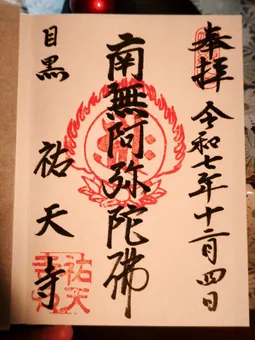 奉拝 令和七年十二月四日
南無阿弥陀佛
目黒 祐天寺